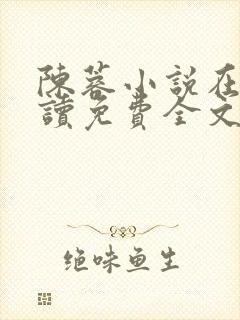 陳蓉小說在
讀免費全文
绝味鱼生